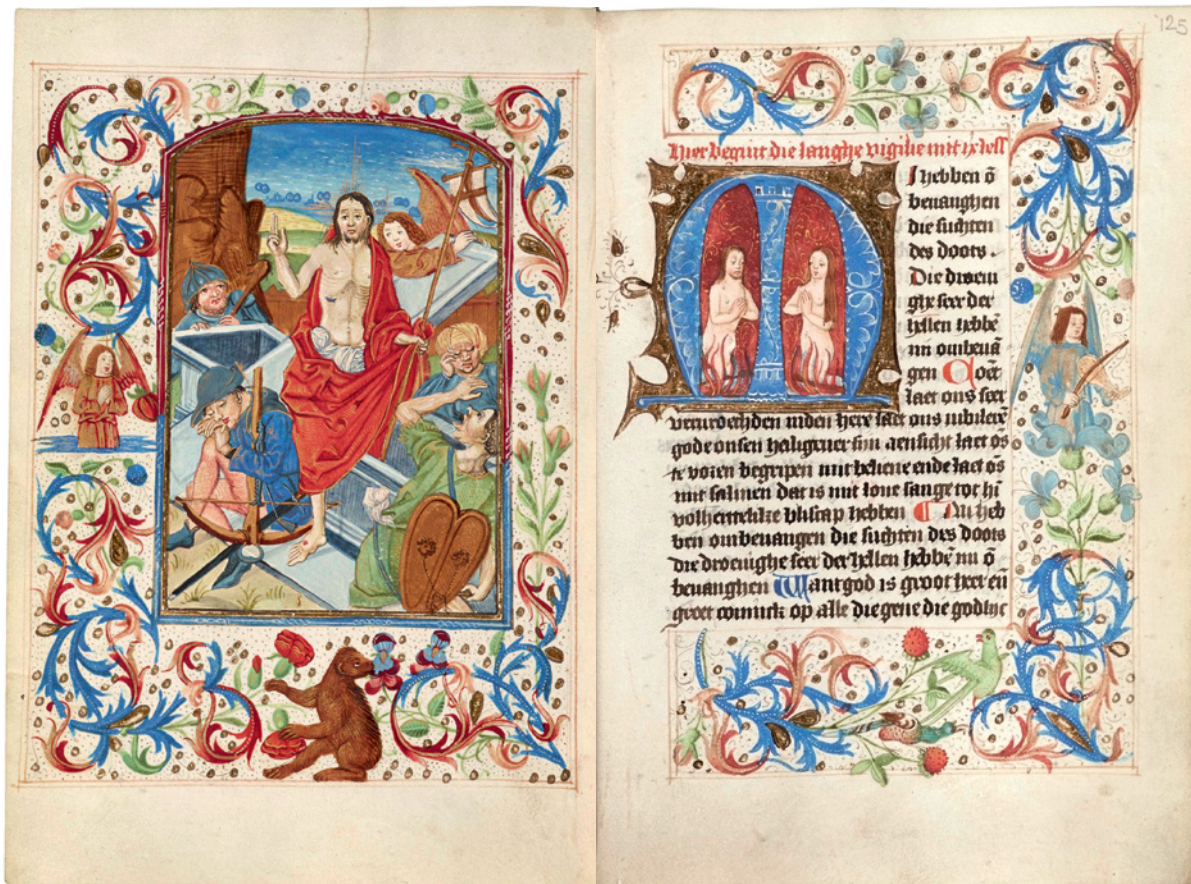 125
Hier begint die langhe vigilie mit ix less
MI hebben õ
beuanghen
die suchten
des doots .
Die droeui
ghe seer der
hellen hebbẽ
mi ombeuã
gen Coẽt
laet ons seer
verurochden inden here laet ons iubilerẽ
gode onsen heilgeuer sijn aensicht laet õs
te voren begripen mit beliene ende laet õs
mit salmen dat is mit loue sange tot hẽ
volherttelike bliscap hebben Mi heb
ben ombeuangen die suchten des doots
die droeuighe seer der hellen hebbẽ mi õ
beuanghen Want god is groot heer eñ
groet coninck op alle die gene die godlijc